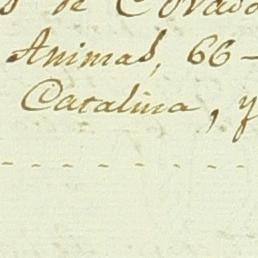 de Covado
Animas, 66-
Catalina, y